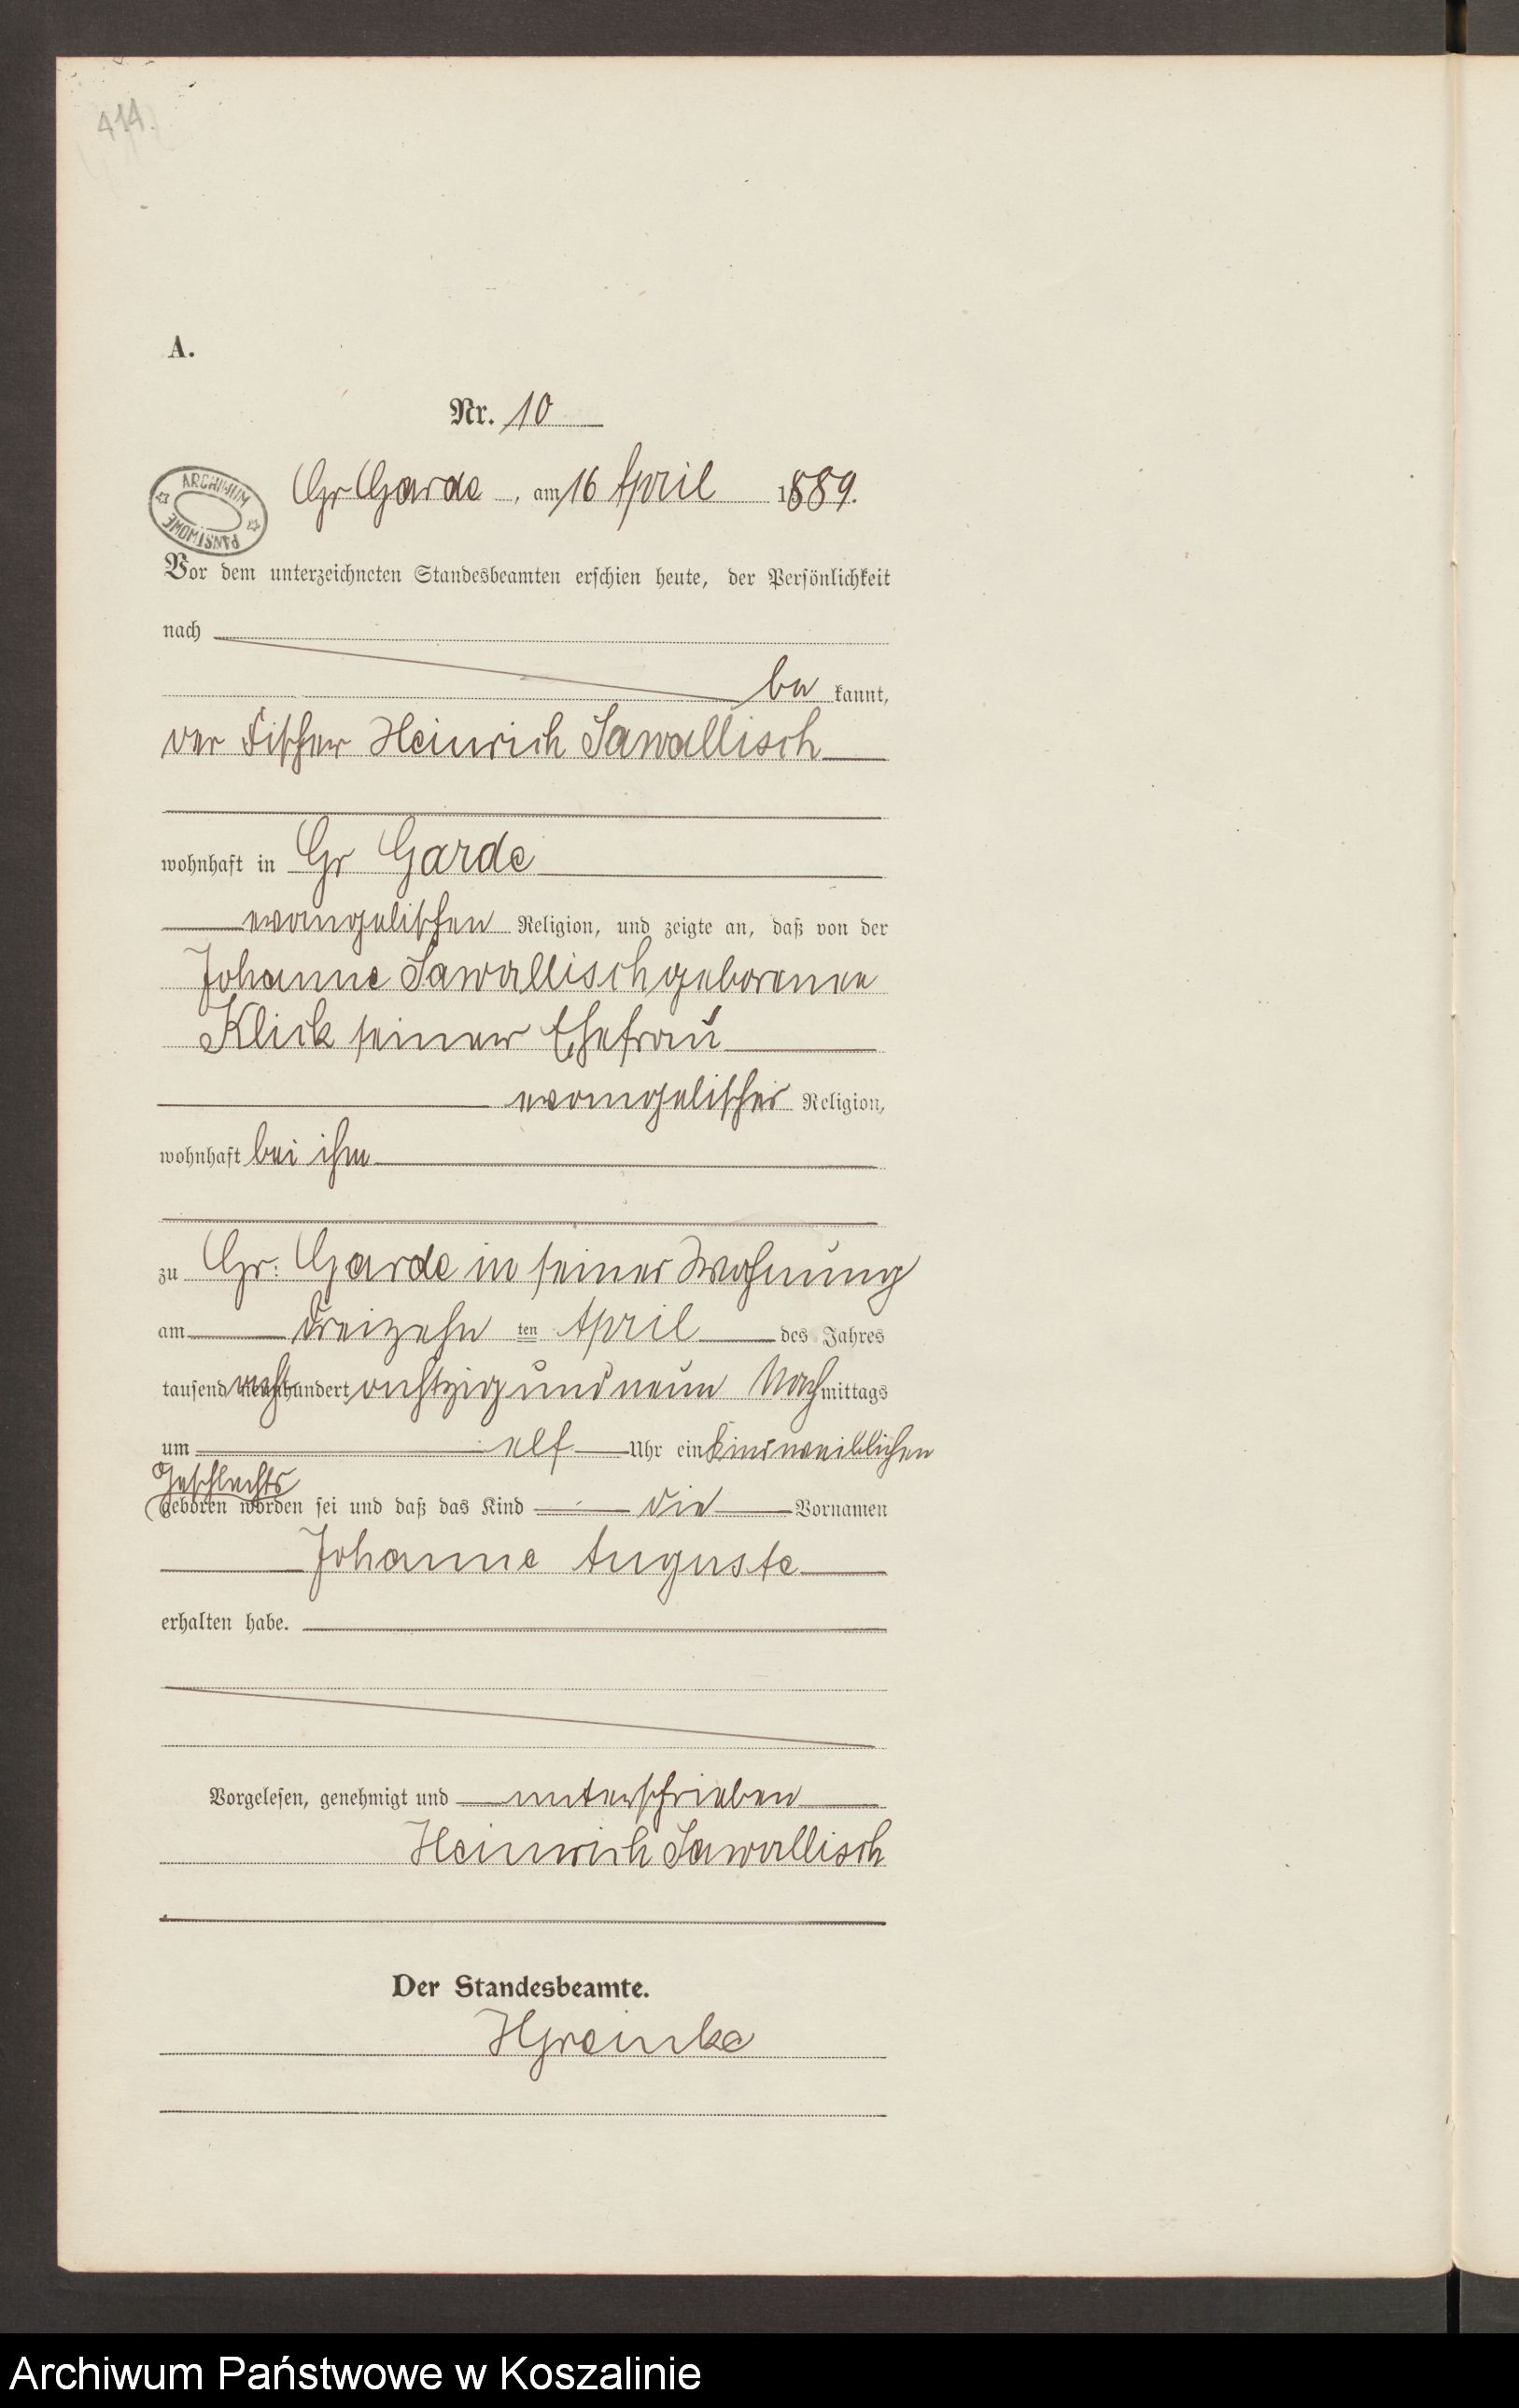 414.
A.
Nr. 10
ARCHIWUM PAŃSTWOWE
Gr Garde, am 16 April 1889.
Vor dem unterzeichneten Standesbeamten erschien heute, der Persönlichkeit
nach
be kannt,
der Fischer Heinrich Sawallisch
wohnhaft in Gr Garde
evangelischen Religion, und zeigte an, daß von der
Johanne Sawallisch geborenen
Klick seiner Ehefrau
evangelischer Religion,
wohnhaft bei ihm
zu Gr: Garde in seiner Wohnung
am dreizehn ten April des Jahres
tausend acht hundert achtzig und neun Nach mittags
um elf Uhr ein Kind weiblichen
Geschlechts
geboren worden sei und daß das Kind die Vornamen
Johanne Auguste
erhalten habe.
Vorgelesen, genehmigt und unterschrieben
Heinrich Sawallisch
Der Standesbeamte.
HGreinke
Archiwum Państwowe w Koszalinie